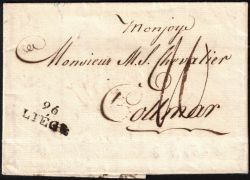 Monjoye
Monsieur M. S. Chevalier
Collmar
96
LIÉGE